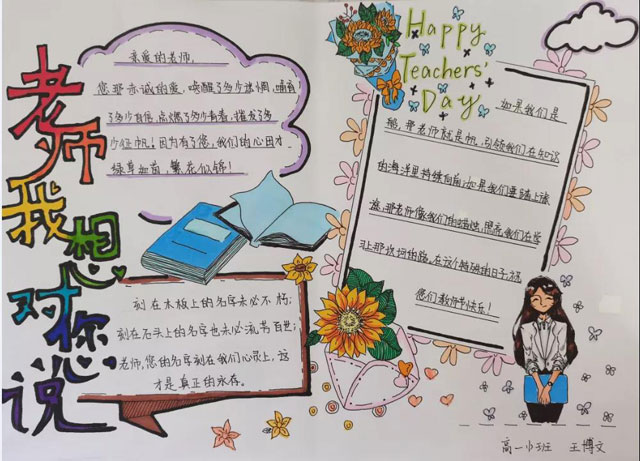 老师我想对你说
亲爱的老师,
您那赤诚的爱,唤醒了多少迷惘,哺育
了多少自信,点燃了多少青春,摧发了多
少征帆!因为有了您,我们的心田才
绿草如茵,繁花似锦!
刻在木板上的名字未必不朽;
刻在石头上的名字也未必流芳百世;
老师,您的名字刻在我们心灵上,这
才是真正的永存。
Happy
Teachers'
Day
如果我们是
船,那老师就是帆,引领我们在知识
的海洋里持续向前;如果我们要踏上旅
途,那老师像我们的,照亮我们在
上那坎坷的路,在这个特殊的日子祝
您们教师节快乐!
高一 班 王博文